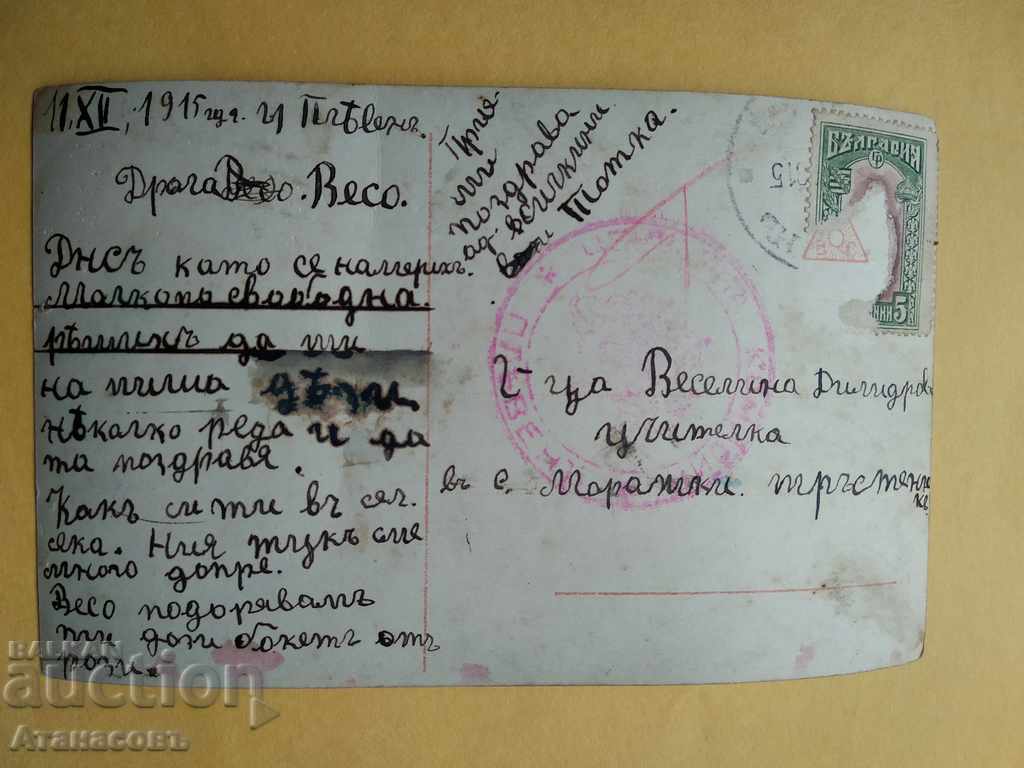 11.XII, 1915 год. Плѣвенъ.
Драга Весо.
Днсъ като се намерихъ
малкото свободна
рѣшихъ да ти
на пиша дѣзи
нѣкалко реда и да
та поздравя.
Какъ си ти въ сел.
сека. Ния тукъ сме
много допре.
Весо подорявамъ
ти дози бокетъ отъ
рози.
Прие-
ми
поздрава
ад всичкини
Тотка.
Г-ца Веселина
учителка
въ с. Моратки. тръстеник
къ
БЪЛГАРИЯ
5
15
BALKAN
auction
Атанасовъ